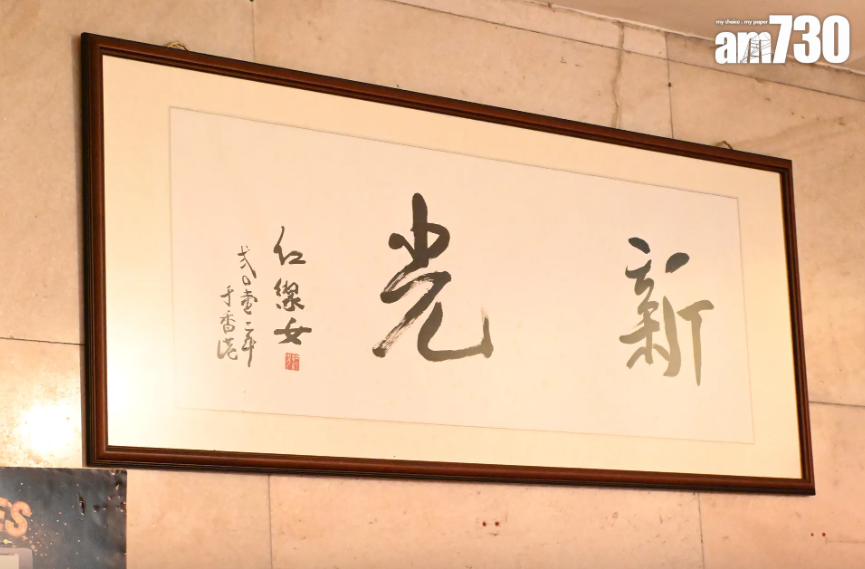 my choice . my paper
am730
新光
紅線女
弍〇壹二年
于香港
ES